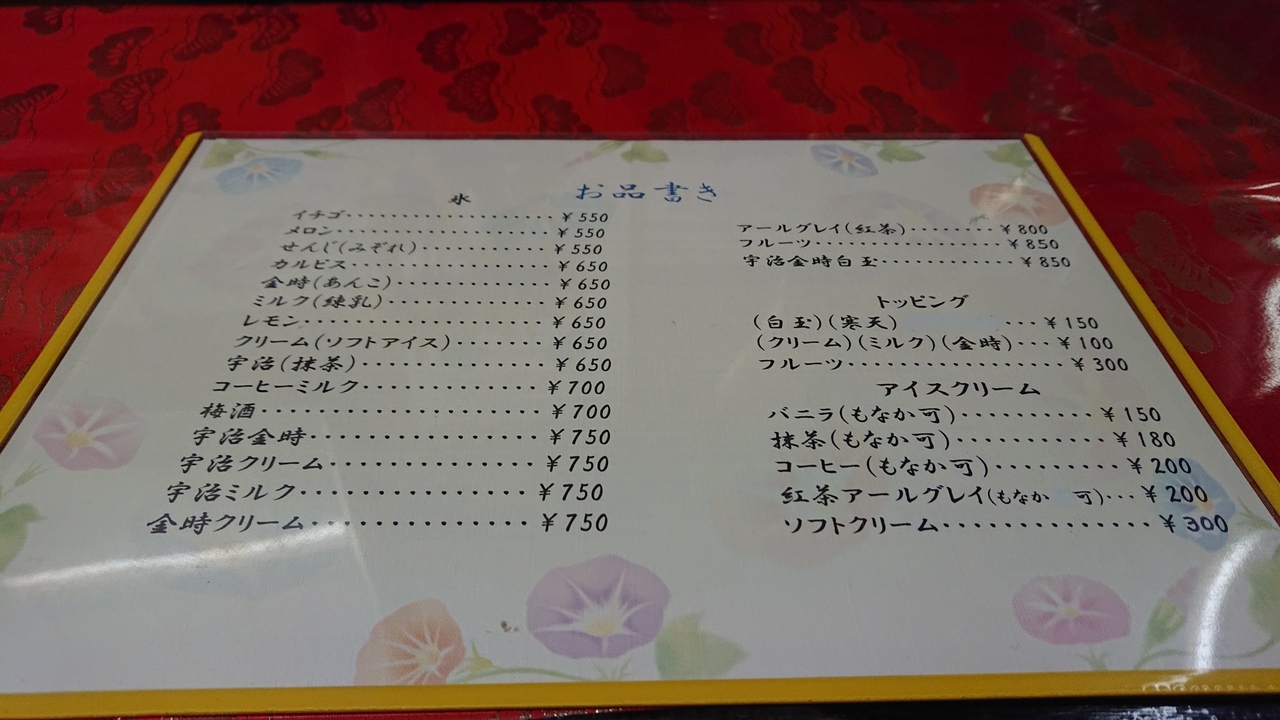 お品書き
氷
イチゴ・・・・・・・・・・・・・・・・・・・・¥550
メロン・・・・・・・・・・・・・・・・・・・・¥550
せんじ(みぞれ)・・・・・・・・・・・・¥550
カルピス・・・・・・・・・・・・・・・・・・¥650
金時(あんこ)・・・・・・・・・・・・・・¥650
ミルク(練乳)・・・・・・・・・・・・・・¥650
レモン・・・・・・・・・・・・・・・・・・・・¥650
クリーム(ソフトアイス)・・・・・・・¥650
宇治(抹茶)・・・・・・・・・・・・・・・・¥650
コーヒーミルク・・・・・・・・・・・・・¥700
梅酒・・・・・・・・・・・・・・・・・・・・・¥700
宇治金時・・・・・・・・・・・・・・・・・¥750
宇治クリーム・・・・・・・・・・・・・・¥750
宇治ミルク・・・・・・・・・・・・・・・・¥750
金時クリーム・・・・・・・・・・・・・・・¥750
アールグレイ(紅茶)・・・・・・・・¥800
フルーツ・・・・・・・・・・・・・・・・・¥850
宇治金時白玉・・・・・・・・・・・・¥850
トッピング
(白玉)(寒天)・・・¥150
(クリーム)(ミルク)(金時)・・・¥100
フルーツ・・・・・・・・・・・・・・・・・¥300
アイスクリーム
バニラ(もなか可)・・・・・・・・・・¥150
抹茶(もなか可)・・・・・・・・・・・¥180
コーヒー(もなか可)・・・・・・・・・¥200
紅茶アールグレイ(もなか 可)・・・¥200
ソフトクリーム・・・・・・・・・・・・・・・¥300